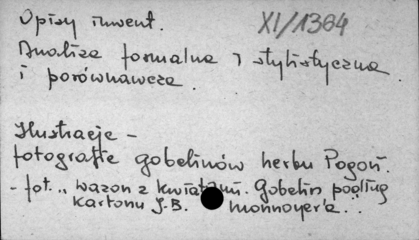 Opisy inwent. XI/1364
Analiza formalna i stylistyczna
i porównawcza.
Ilustracje -
fotografie gobelinów herbu Pogoń.
- fot. „ wazon z kwiatami. Gobelin podług
kartonu J.B. Monnoyer'a."